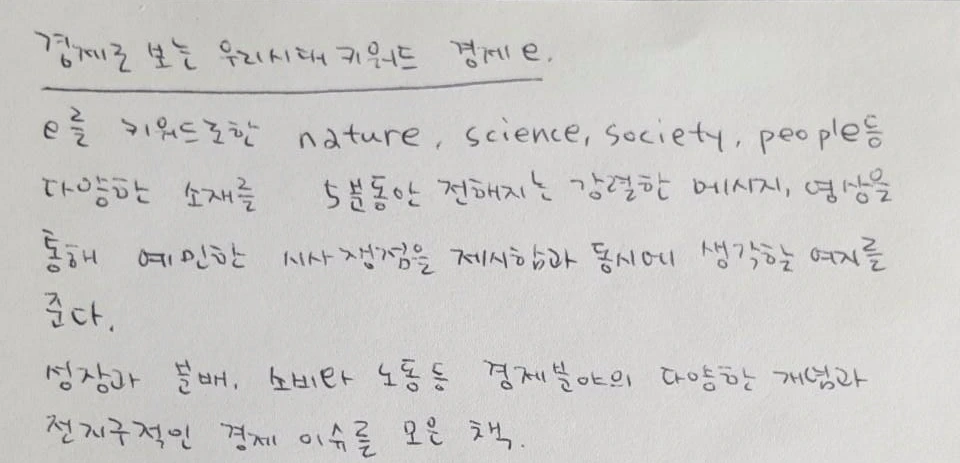 경제로 보는 우리시대 키워드 경제 e.
e를 키워드로한 nature, science, society, people등
다양한 소재를 5분동안 전해지는 강렬한 메시지, 영상을
통해 예민한 시사 쟁점을 제시함과 동시에 생각할 여지를
준다.
성장과 분배, 소비와 노동 등 경제분야의 다양한 개념과
전지구적인 경제 이슈를 모은 책.